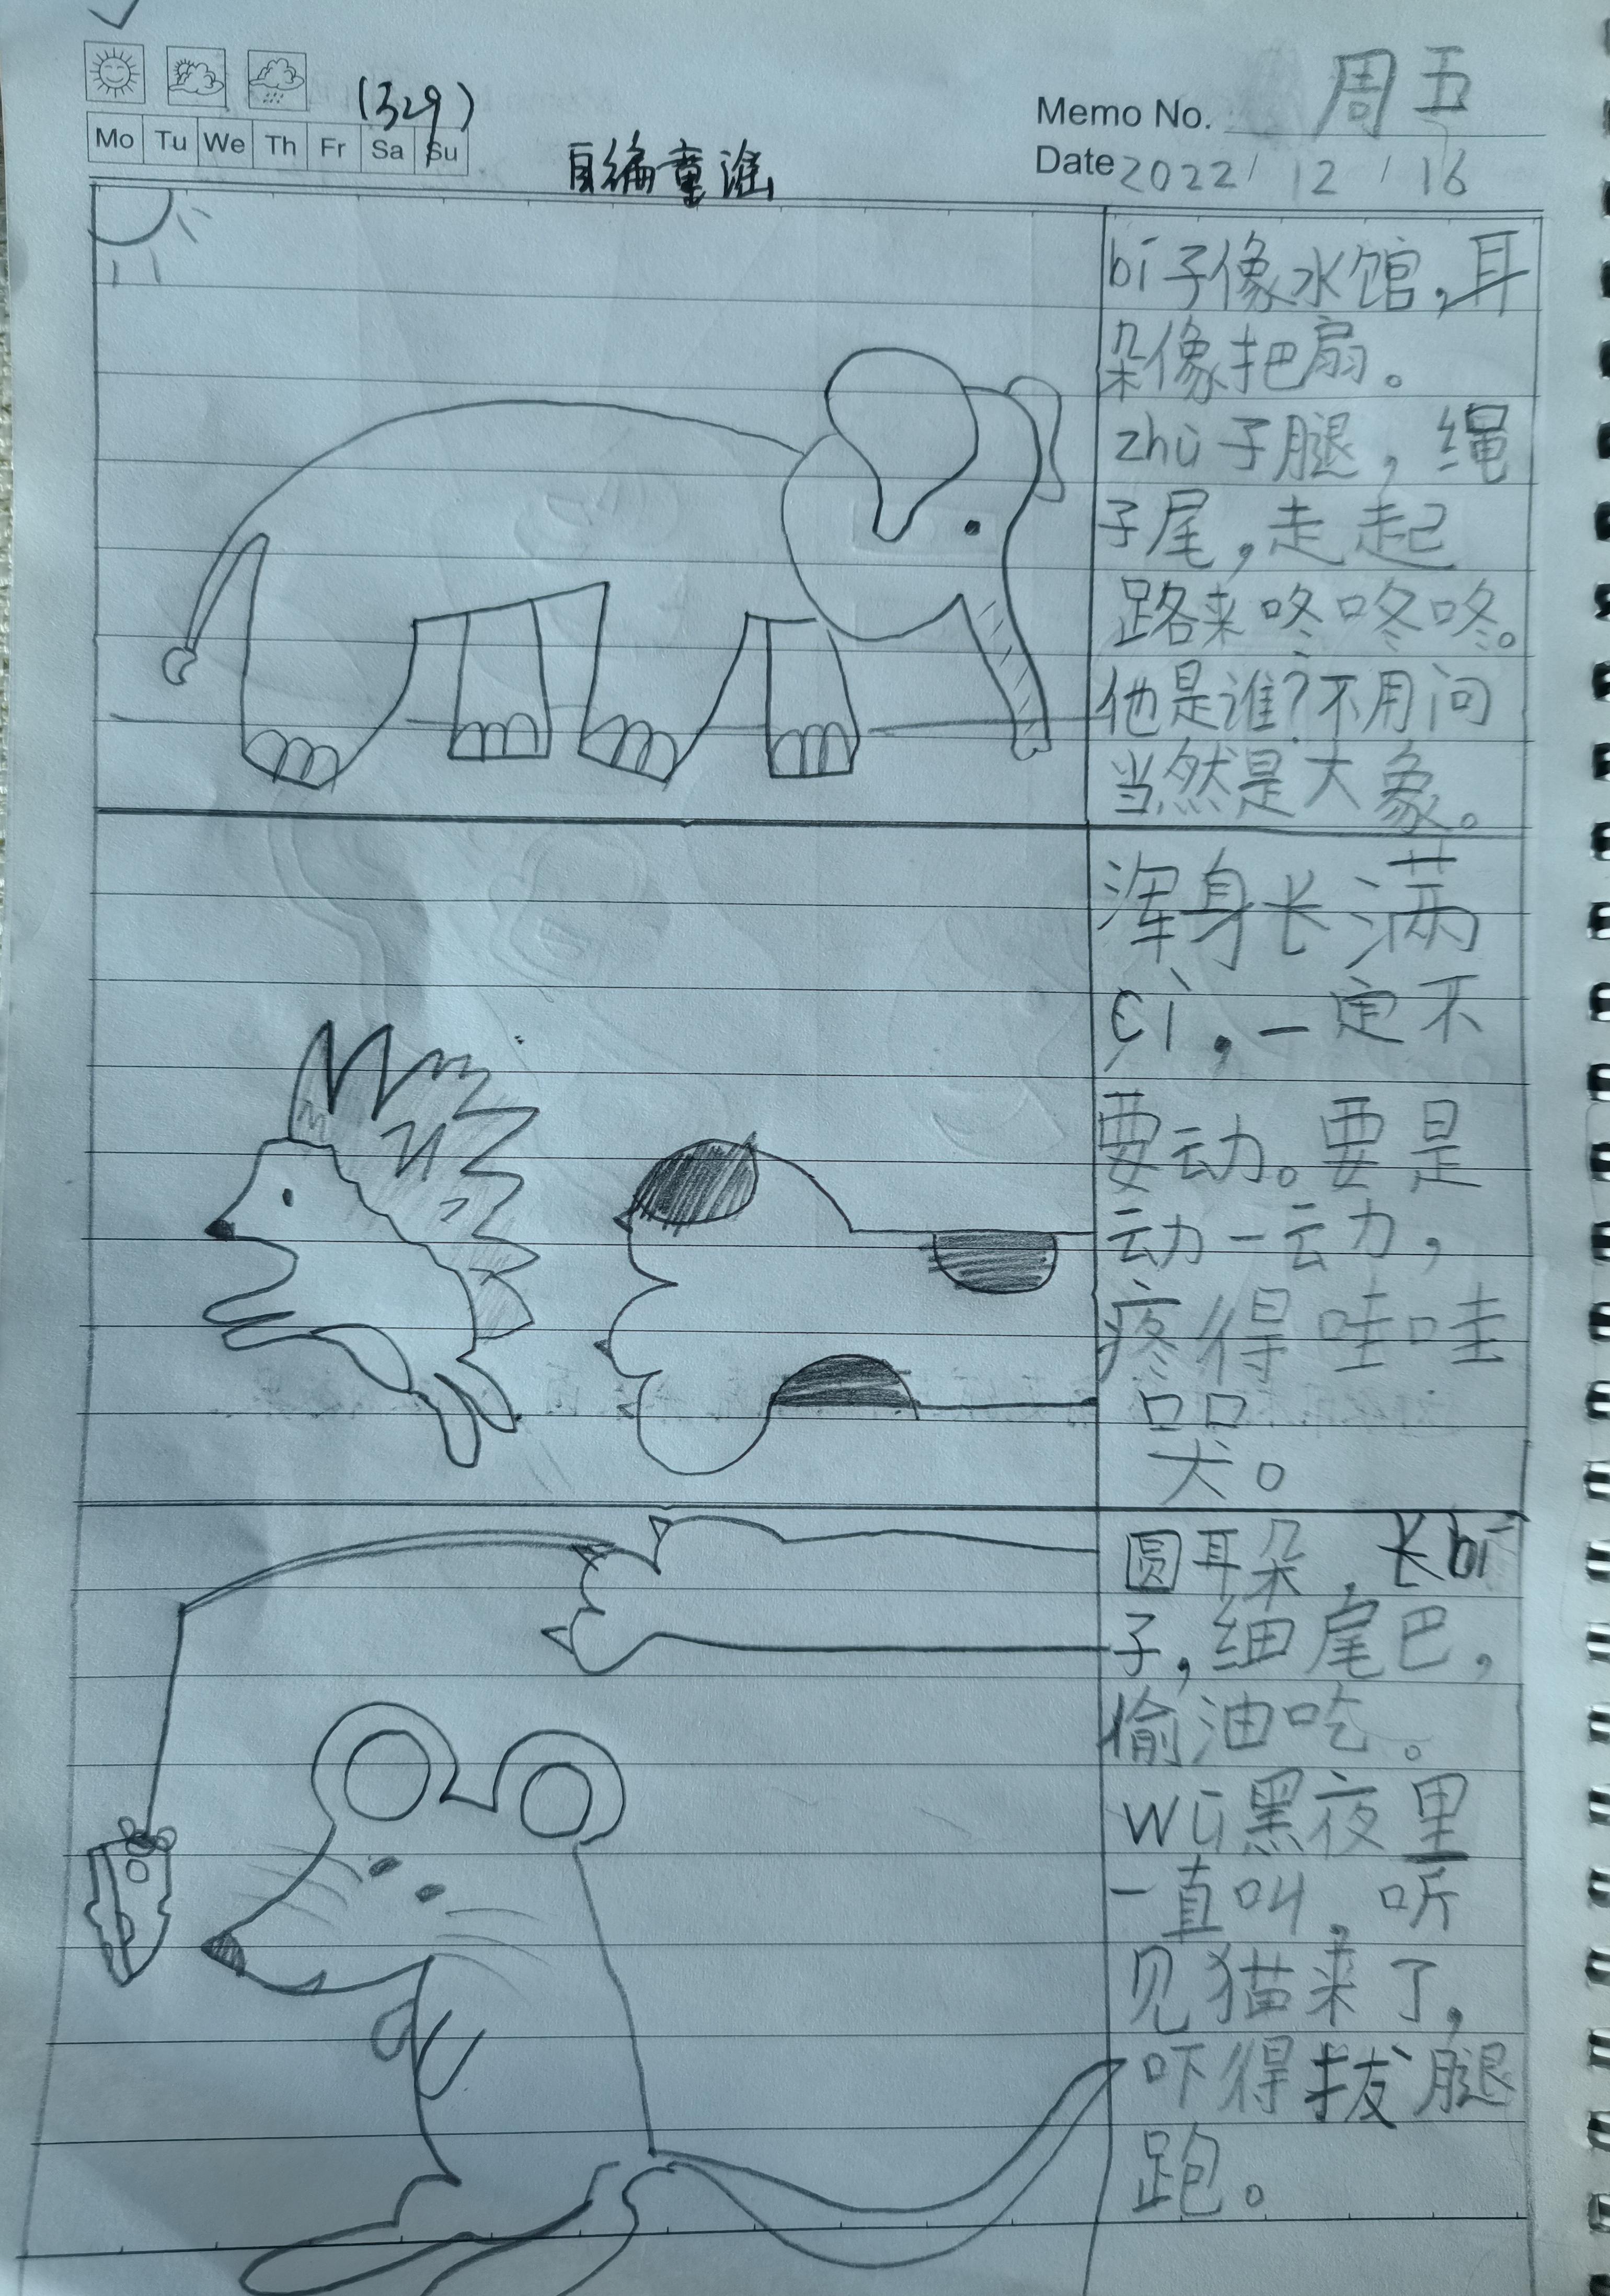 (329)
Mo Tu We Th Fr Sa Su
Memo No. 周五
Date 2022/12/16
自编童谣
bí子像水馆,耳
朵像把扇。
zhù子腿,绳
子尾,走起
路来咚咚咚。
他是谁?不用问
当然是大象。
浑身长满
cì,一定不
要动。要是
动一动,
疼得哇哇
哭。
圆耳朵,长bí
子,细尾巴,
偷油吃。
wū黑夜里
一直叫,听
见猫来了,
吓得拔腿
跑。